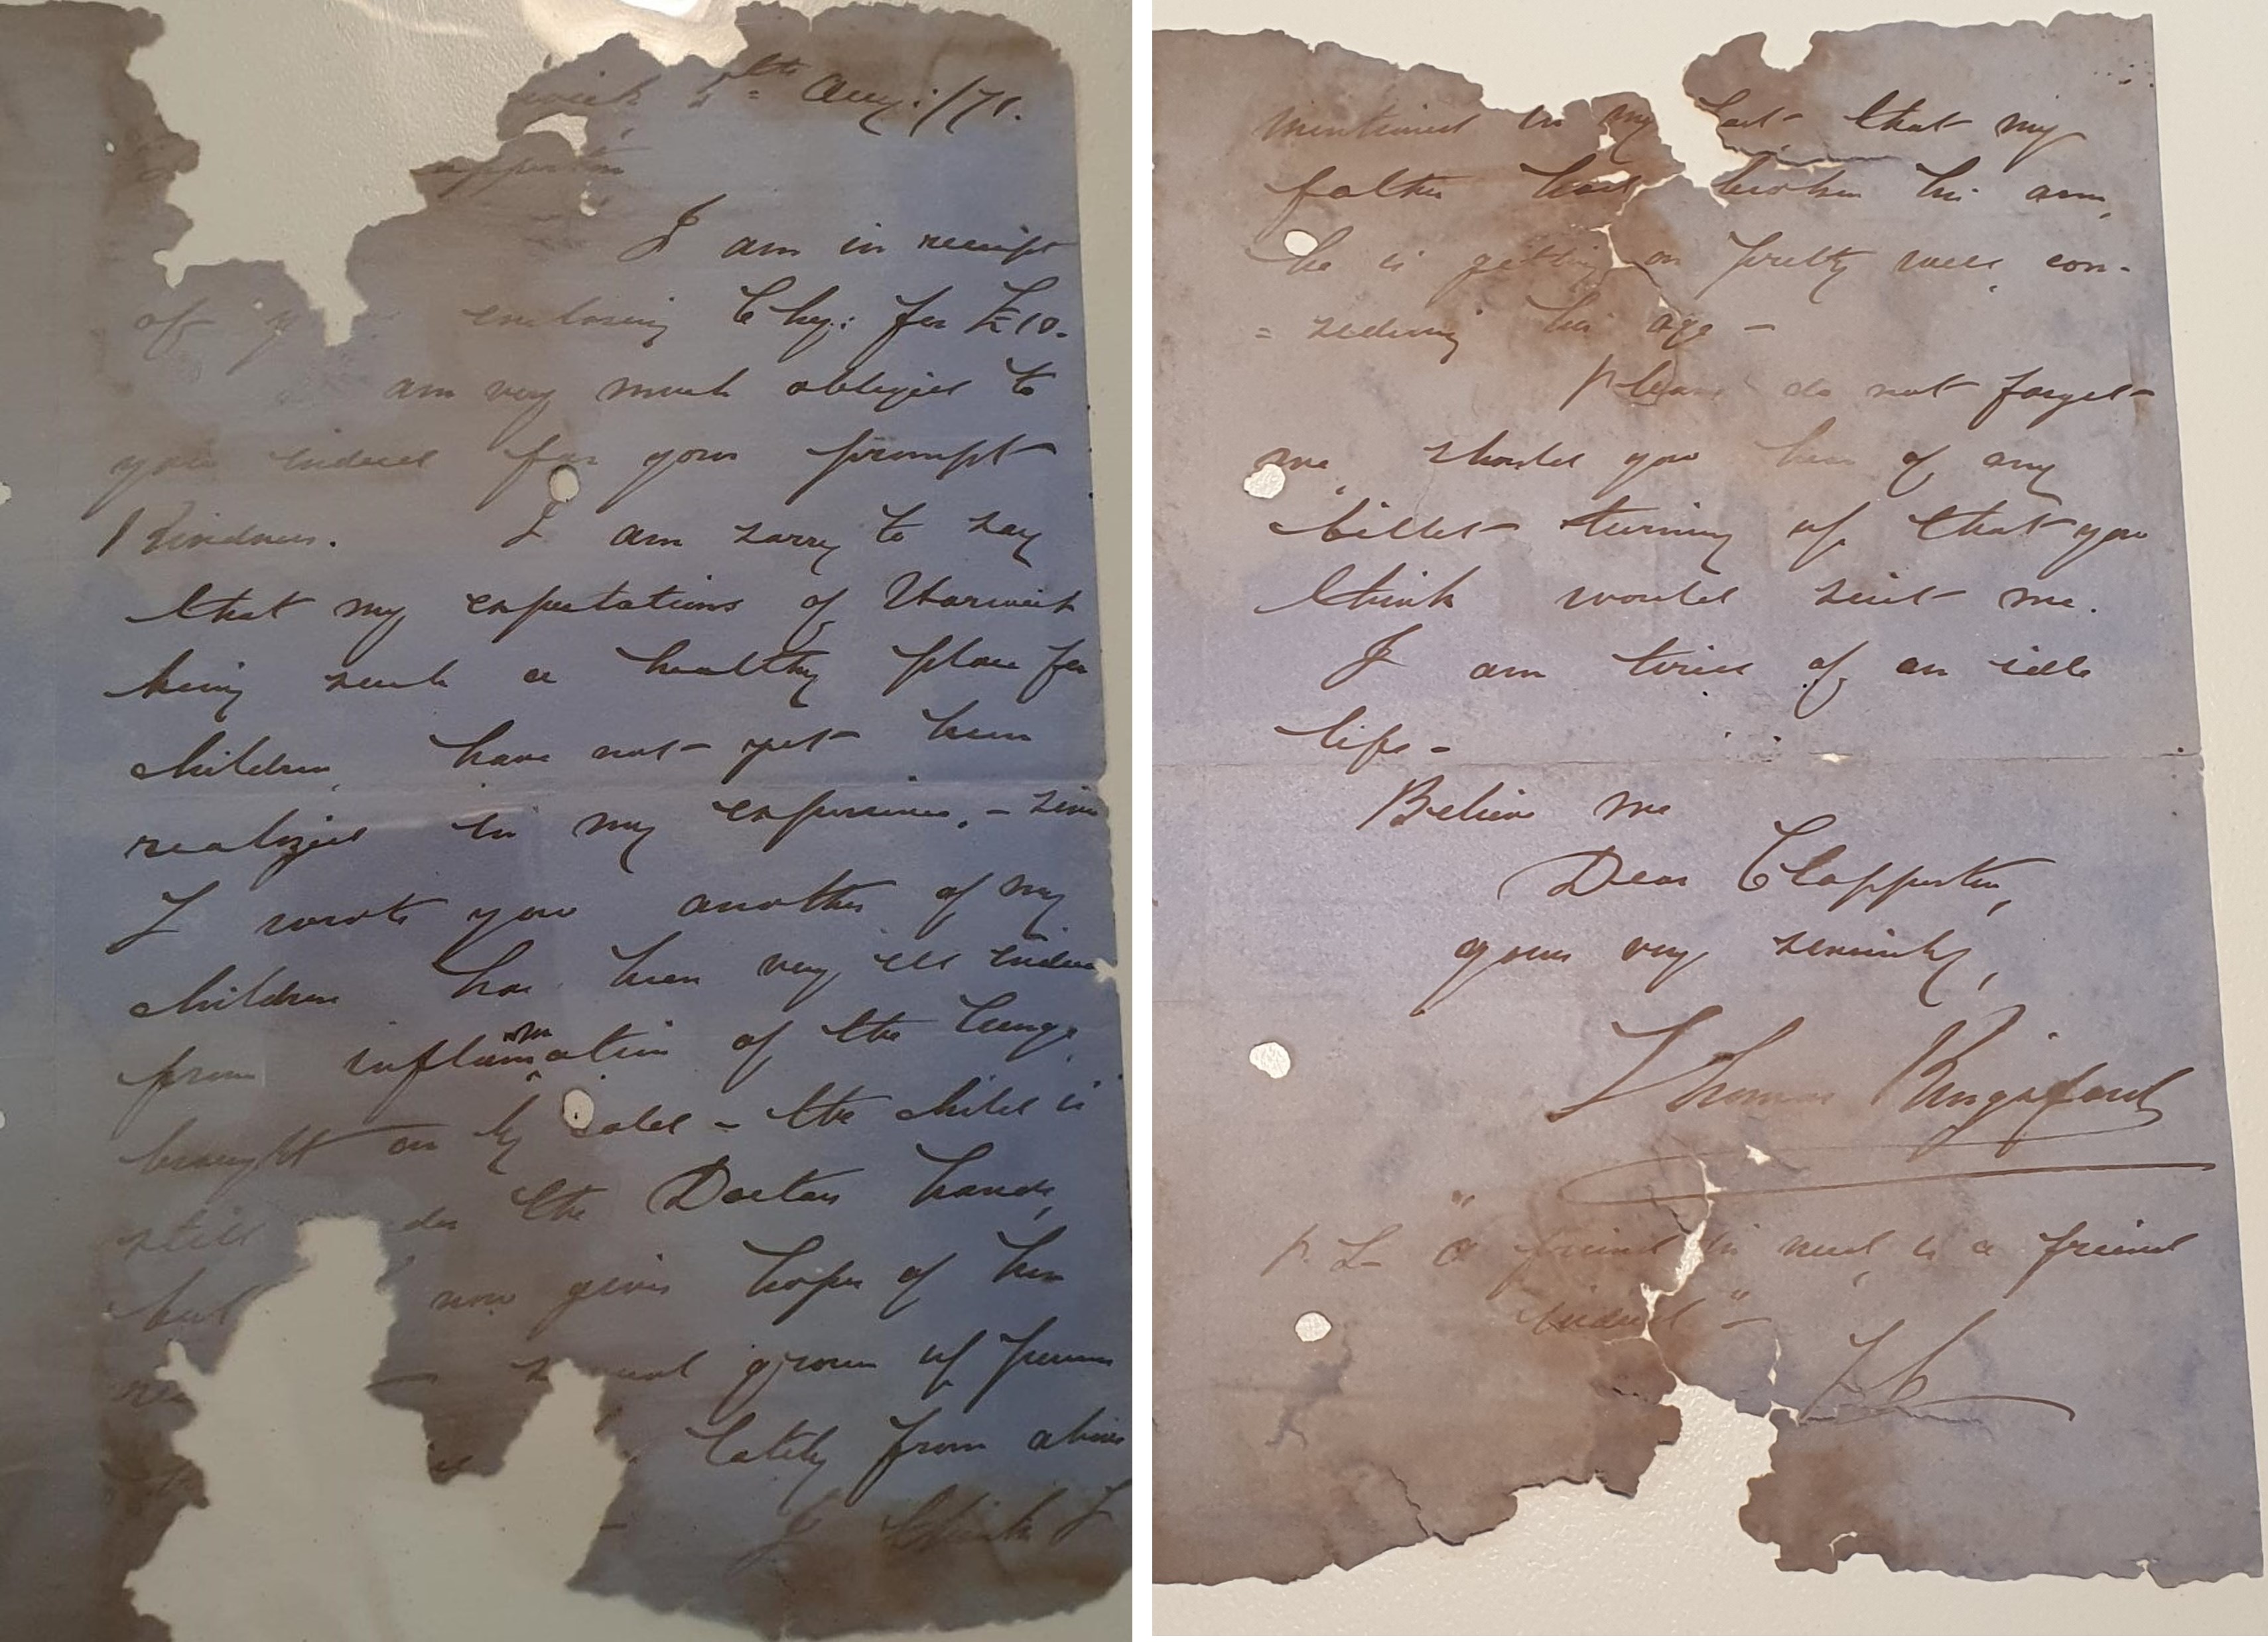 wick 5th Augt: /71.
apperton
I am in receipt
of y enclosing Chq: for £10.
am very much obliged to
you indeed for your prompt
kindness. I am sorry to say
that my expectations of Harwich
being such a healthy place for
children, have not yet been
realized in my experience. - Since
I wrote you another of my
children has been very ill indeed
from inflammation of the lungs
brought on by cold - the child is
still der the Doctors hands,
but now gives hopes of her
rec - several grown up persons
lately from above
I think I
mentioned in my last that my
father had broken his arm,
he is getting on pretty well con-
=sidering his age -
Please do not forget
me, should you hear of any
billet turning up that you
think would suit me.
I am tired of an idle
life -
Believe me
Dear Clapperton,
yours very sincerely,
Thomas Kingsford
P.S. "A friend in need, is a friend
indeed" -